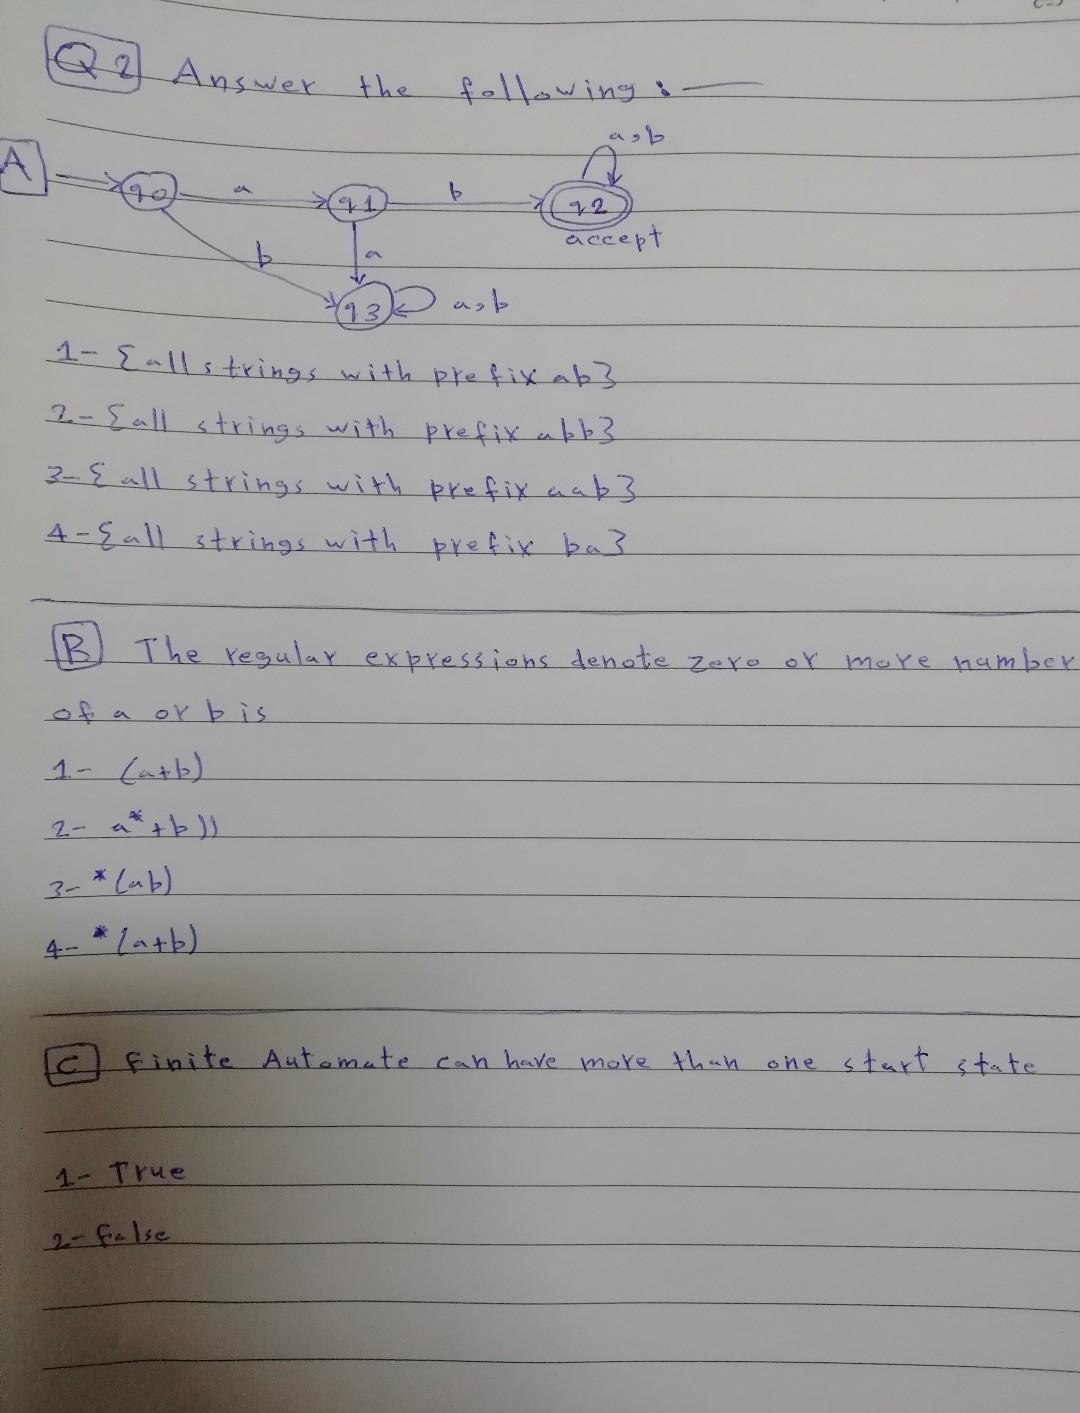 Q2 Answer the following :
A
q0 a q1 b q2 a,b
accept
b a
q3 a,b
1- {all strings with prefix ab}
2- {all strings with prefix abb}
3- {all strings with prefix aab}
4- {all strings with prefix ba}
B The regular expressions denote zero or more number
of a or b is
1- (a+b)
2- a*+b))
3- *(ab)
4- *(a+b)
C Finite Automate can have more than one start state
1- True
2- False